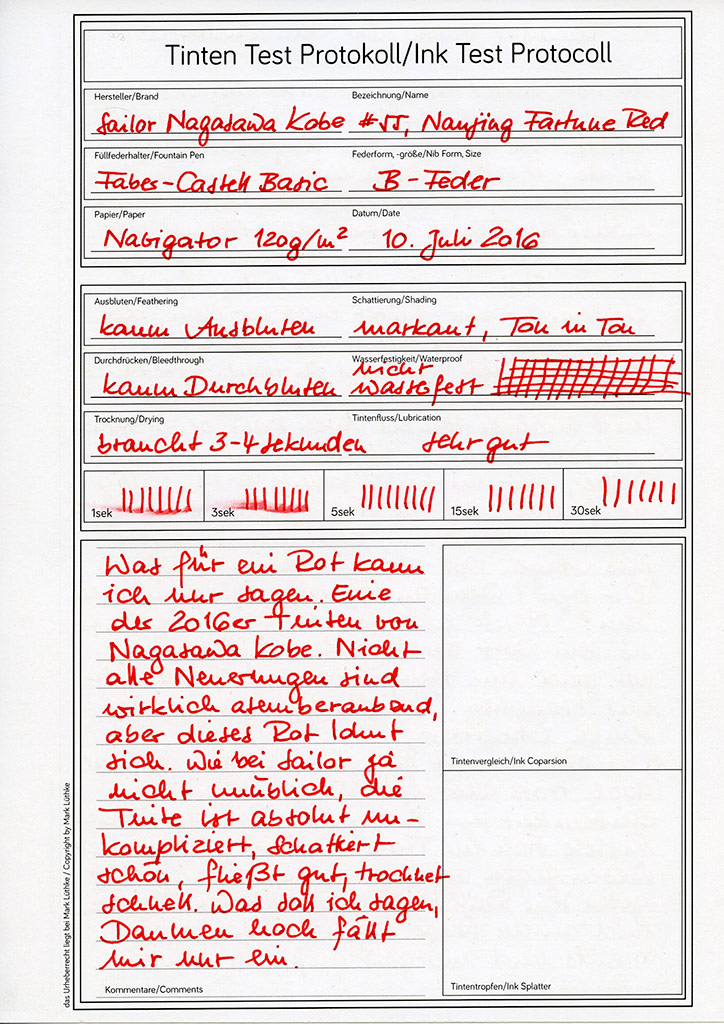 Tinten Test Protokoll/Ink Test Protocoll
Hersteller/Brand
Bezeichnung/Name
Sailor Nagasawa Kobe #55, Nanjing Fortune Red
Füllfederhalter/Fountain Pen
Federform, -größe/Nib Form, Size
Faber-Castell Basic B-Feder
Papier/Paper
Datum/Date
Navigator 120g/m² 10. Juli 2016
Ausbluten/Feathering
Schattierung/Shading
kaum Ausbluten markant, Ton in Ton
Durchdrücken/Bleedthrough
Wasserfestigkeit/Waterproof
nicht
kaum Durchbluten wasserfest
Trocknung/Drying
Tintenfluss/Lubrication
braucht 3-4 Sekunden sehr gut
1sek
3sek
5sek
15sek
30sek
Was für ein Rot kann
ich nur sagen. Eine
der 2016er Tinten von
Nagasawa Kobe. Nicht
alle Neuerungen sind
wirklich atemberaubend,
aber dieses Rot lohnt
sich. Wie bei Sailor ja
nicht unüblich, die
Tinte ist absolut un-
kompliziert, schattiert
schön, fließt gut, trocknet
schnell. Was soll ich sagen,
Daumen hoch fällt
mir nur ein.
Kommentare/Comments
Tintenvergleich/Ink Coparsion
Tintentropfen/Ink Splatter
das Urheberrecht liegt bei Mark Lüthke / Copyright by Mark Lüthke